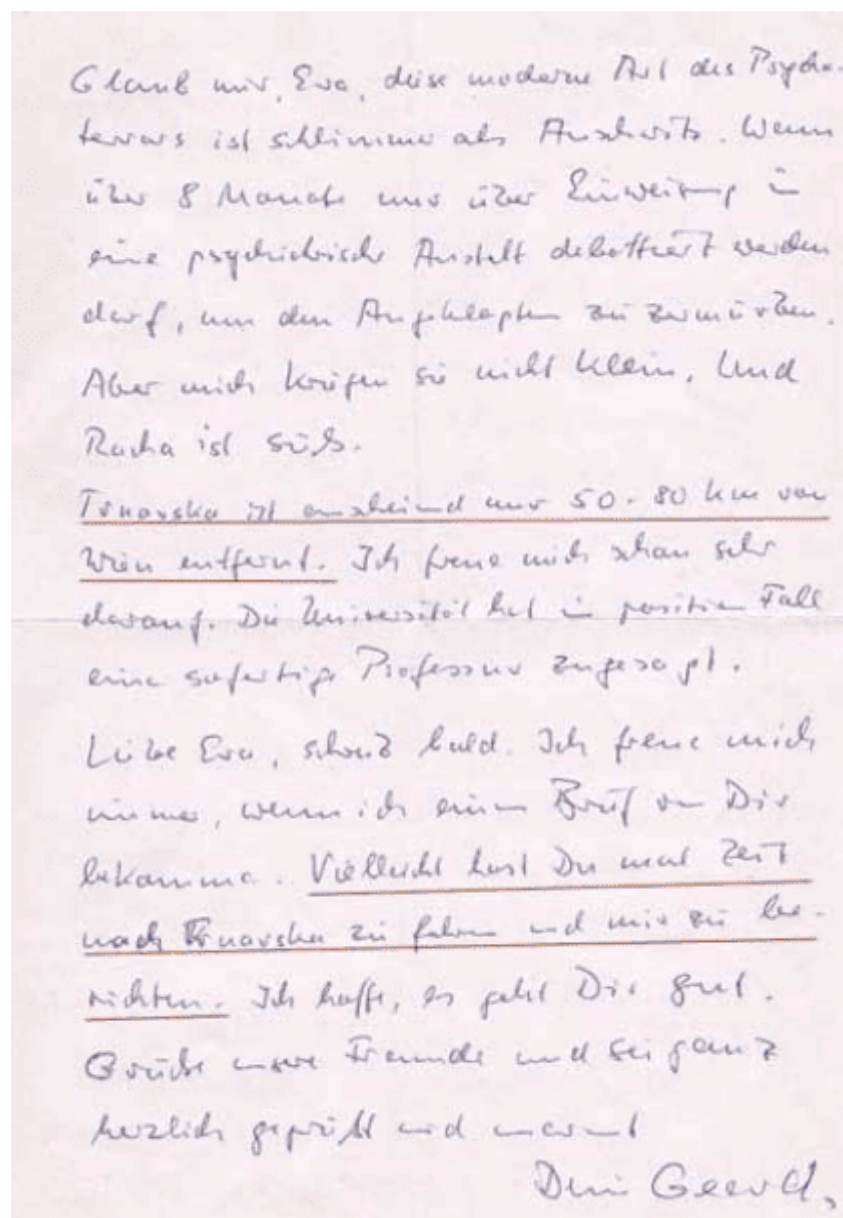 Glaub mir, Eva, diese moderne Art des Psycho-
terrors ist schlimmer als Auschwitz. Wenn
über 8 Monate nur über Einweisung in
eine psychiatrische Anstalt debattiert werden
darf, um den Angeklagten zu zermürben.
Aber mich kriegen sie nicht klein. Und
Rache ist süß.
Trnavska ist anscheinend nur 50-80 km von
Wien entfernt. Ich freue mich schon sehr
darauf. Die Universität hat im positiven Fall
eine sofortige Professur zugesagt.
Liebe Eva, schreib bald. Ich freue mich
immer, wenn ich einen Brief von Dir
bekomme. Vielleicht hast Du mal Zeit
nach Trnavska zu fahren und mir zu be-
richten. Ich hoffe, es geht Dir gut.
Grüße unsere Freunde und sei ganz
herzlich gegrüßt und umarmt
Dein Geerd.